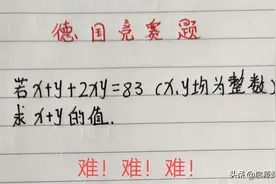 德国竞赛题
若x+y+2xy=83 (x,y均为整数)
求x+y的值.
难！难！难！